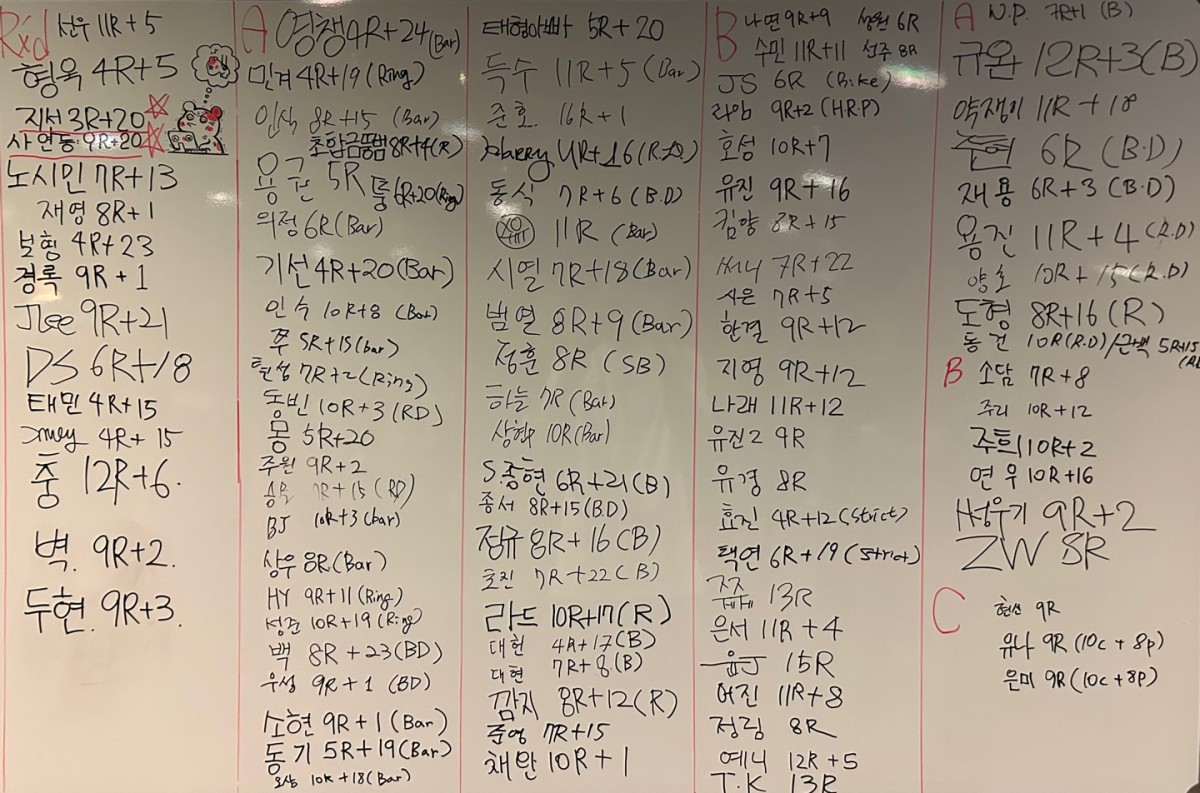 Rx'd 선우 11R+5
형욱 4R+5
지선 3R+20
사연등 9R+20
노시민 7R+13
재영 8R+1
보형 4R+23
경록 9R+1
JLee 9R+21
DS 6R+18
태민 4R+15
4R+15
충 12R+6.
벽. 9R+2.
두현. 9R+3.
A 영쟁 4R+24 (Bar)
민겨 4R+19 (Ring)
인식 8R+15 (Bar)
초합금땡뱀 8R+4 (R)
용권 5R 룽 6R+20 (Ring)
의정 6R (Bar)
기선 4R+20 (Bar)
인숙 10R+8 (Bar)
쭈 5R+15 (bar)
7R+2 (Ring)
동빈 10R+3 (RD)
몽 5R+20
주원 9R+2
7R+15 (RD)
BJ 10R+3 (bar)
상우 8R (Bar)
HY 9R+11 (Ring)
성준 10R+19 (Ring)
백 8R+23 (BD)
우성 9R+1 (BD)
소현 9R+1 (Bar)
동기 5R+19 (Bar)
10R+18 (Bar)
태형아빠 5R+20
득수 11R+5 (Bar)
준호 16R+1
4R+16 (R.D)
동식 7R+6 (B.D)
11R (Bar)
시열 7R+18 (Bar)
범열 8R+9 (Bar)
정훈 8R (SB)
하늘 7R (Bar)
상현 10R (Bar)
S.종현 6R+21 (B)
종서 8R+15 (BD)
정규 8R+16 (B)
호진 7R+22 (B)
라드 10R+17 (R)
대헌 4R+17 (B)
대현 7R+8 (B)
깜지 8R+12 (R)
준영 7R+15
채완 10R+1
B 나연 9R+9 성원 6R
수민 11R+11 성주 8R
JS 6R (Bike)
라임 9R+2 (H.R.P)
호성 10R+7
유진 9R+16
김양 8R+15
써니 7R+22
사은 7R+5
한결 9R+12
지영 9R+12
나래 11R+12
유진2 9R
유경 8R
효진 4R+12 (Strict)
택연 6R+19 (Strict)
쭈쭈 13R
은서 11R+4
윤J 15R
어진 11R+8
정림 8R
예니 12R+5
T.K 13R
A N.P. 7R+1 (B)
규완 12R+3 (B)
약쟁이 11R+18
6R (B.D)
재용 6R+3 (B.D)
용진 11R+4 (R.D)
양호 10R+15 (R.D)
도형 8R+16 (R)
동건 10R (R.D) / 근택 5R+15 (RD)
B 소담 7R+8
주리 10R+12
주희 10R+2
연우 10R+16
H성우기 9R+2
ZW 8R
C 현선 9R
유나 9R (10c+8p)
은미 9R (10c+8p)